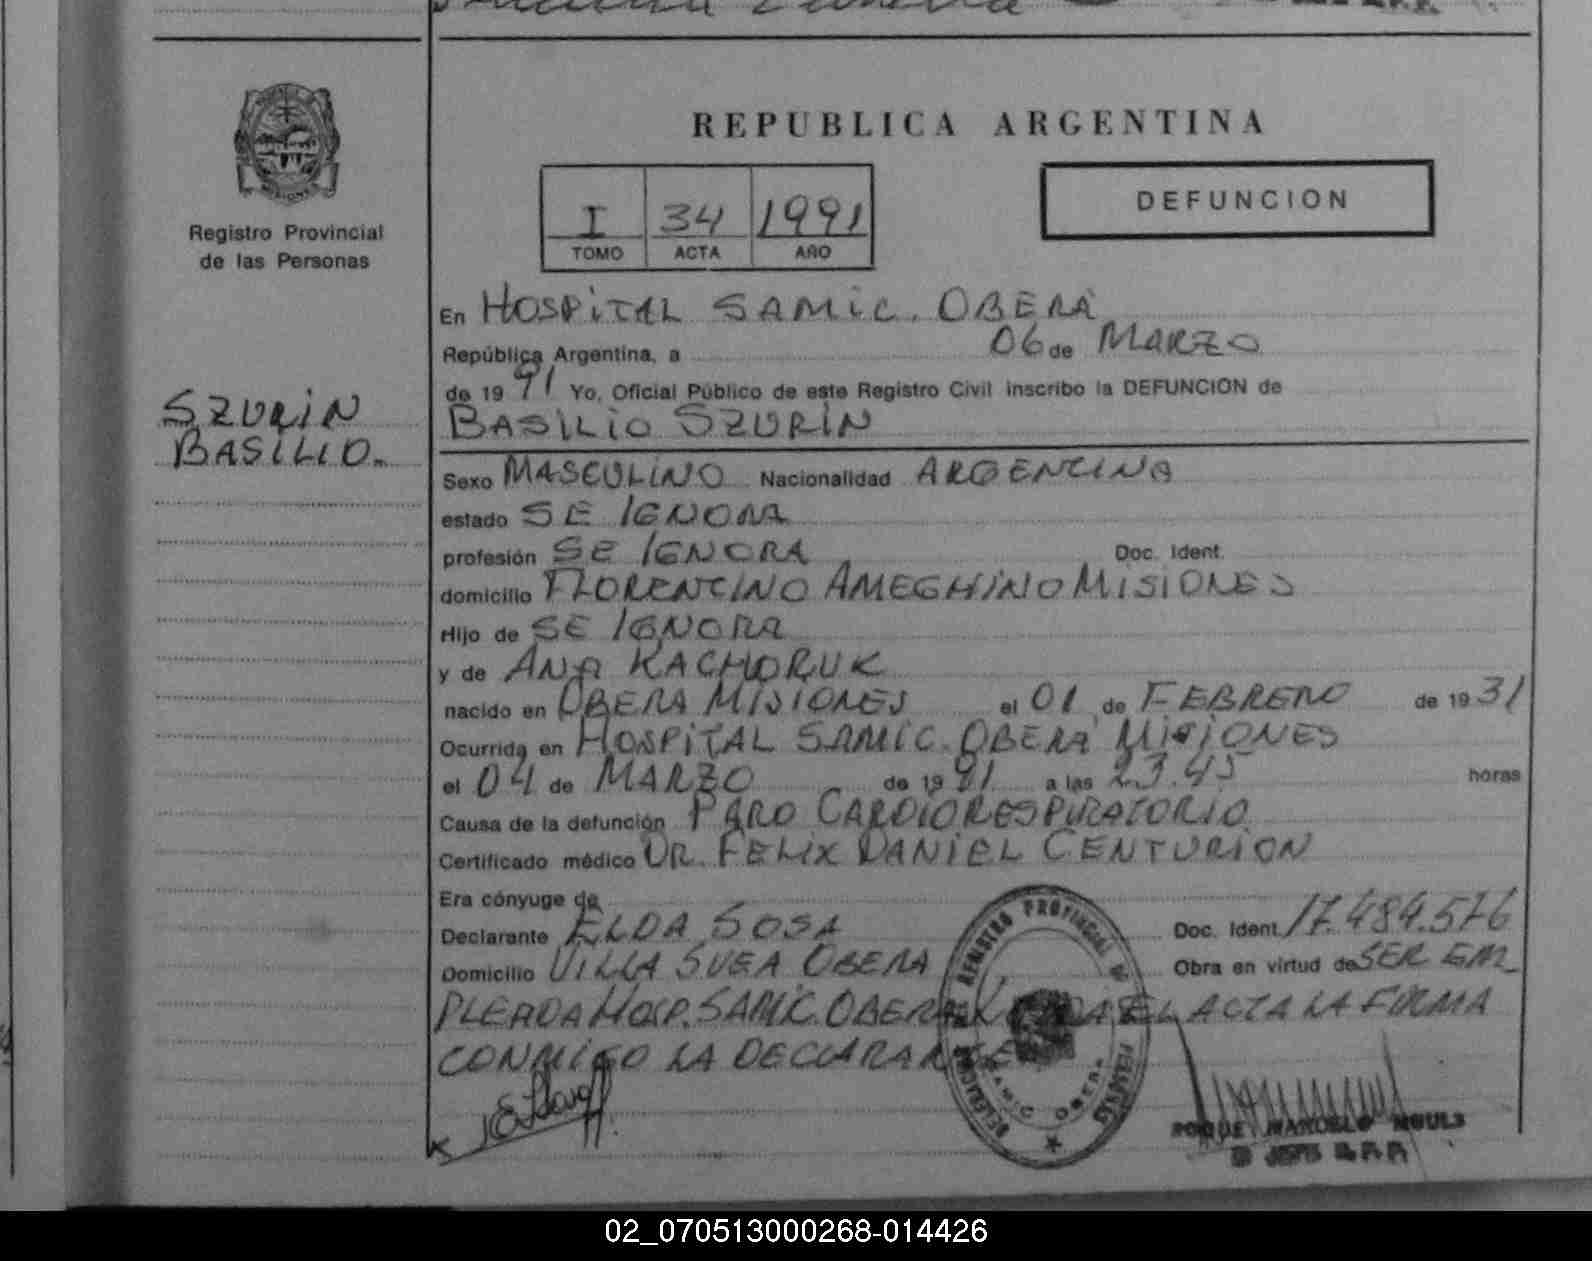 REPUBLICA ARGENTINA
I 34 1991
TOMO ACTA AÑO
DEFUNCION
Registro Provincial
de las Personas
SZURIN
BASILIO.
En HOSPITAL SAMIC. OBERA
República Argentina, a 06 de MARZO
de 19 91 Yo, Oficial Público de este Registro Civil inscribo la DEFUNCION de
BASILIO SZURIN
Sexo MASCULINO Nacionalidad ARGENTINA
estado SE IGNORA
profesión SE IGNORA Doc. Ident.
domicilio FLORENTINO AMEGHINO MISIONES
Hijo de SE IGNORA
y de ANA KACHORUK
nacido en OBERA MISIONES el 01 de FEBRERO de 19 31
Ocurrida en HOSPITAL SAMIC. OBERA MISIONES
el 04 de MARZO de 19 91 a las 23.45 horas
Causa de la defunción PARO CARDIORESPIRATORIO
Certificado médico DR. FELIX DANIEL CENTURION
Era cónyuge de
Declarante ELDA SOSA Doc. Ident. 17.484.576
Domicilio VILLA SVEA OBERA Obra en virtud de SER EM_
PLEADA HOSP. SAMIC. OBERA EL ACTA LA FIRMA
CONMIGO LA DECLARANTE
REGISTRO PROVINCIAL DE
SAMIC OBERA
ROQUE
JEFE R.P.P.
02_070513000268-014426